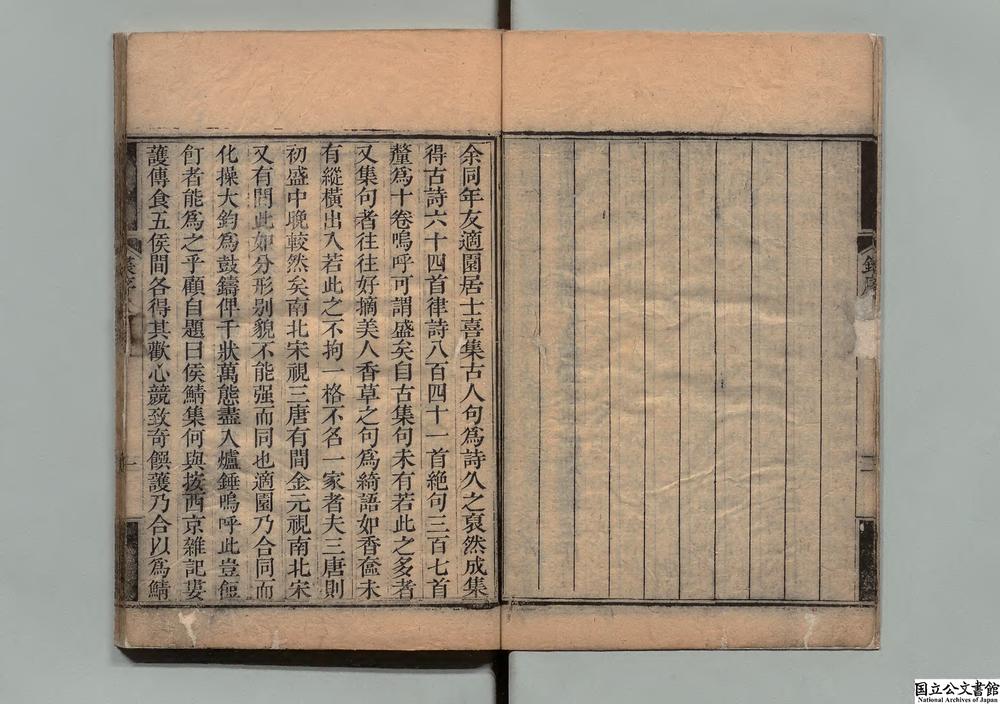 余同年友適園居士喜集古人句爲詩久之裒然成集
得古詩六十四首律詩八百四十一首絶句三百七首
釐爲十卷嗚呼可謂盛矣自古集句未有若此之多者
又集句者往往好摘美人香草之句爲綺語如香奩未
有縱橫出入若此之不拘一格不名一家者夫三唐則
初盛中晚較然矣南北宋視三唐有間金元視南北宋
又有間此如分形别貌不能强而同也適園乃合同而
化操大鈞爲鼓鑄俾千狀萬態盡入爐錘嗚呼此豈餖
飣者能爲之乎顧自題曰侯鯖集何與按西京雜記婁
護傳食五侯間各得其歡心競致奇饌護乃合以爲鯖
集序
一
二
国立公文書館
National Archives of Japan